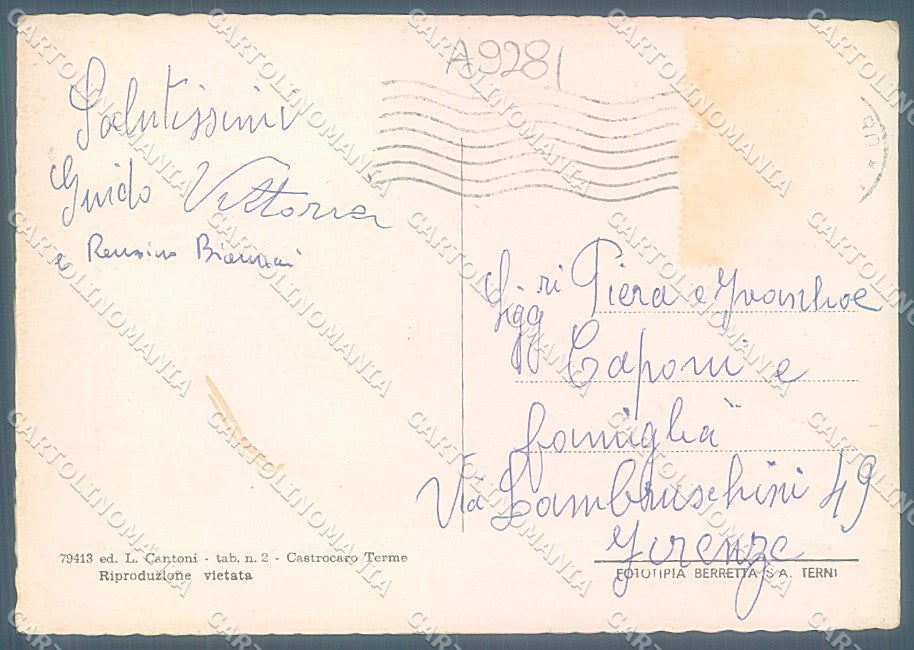 A9281
Salutissimi
Guido Vittoria
e
Sigg.ri Piera e Ivanhoe
Caponi e
famiglia
Via Lambruschini 49
Firenze
79413 ed. L. Cantoni - tab. n. 2 - Castrocaro Terme
Riproduzione vietata
FOTOTIPIA BERRETTA S. A. TERNI
CARTOLINOMANIA